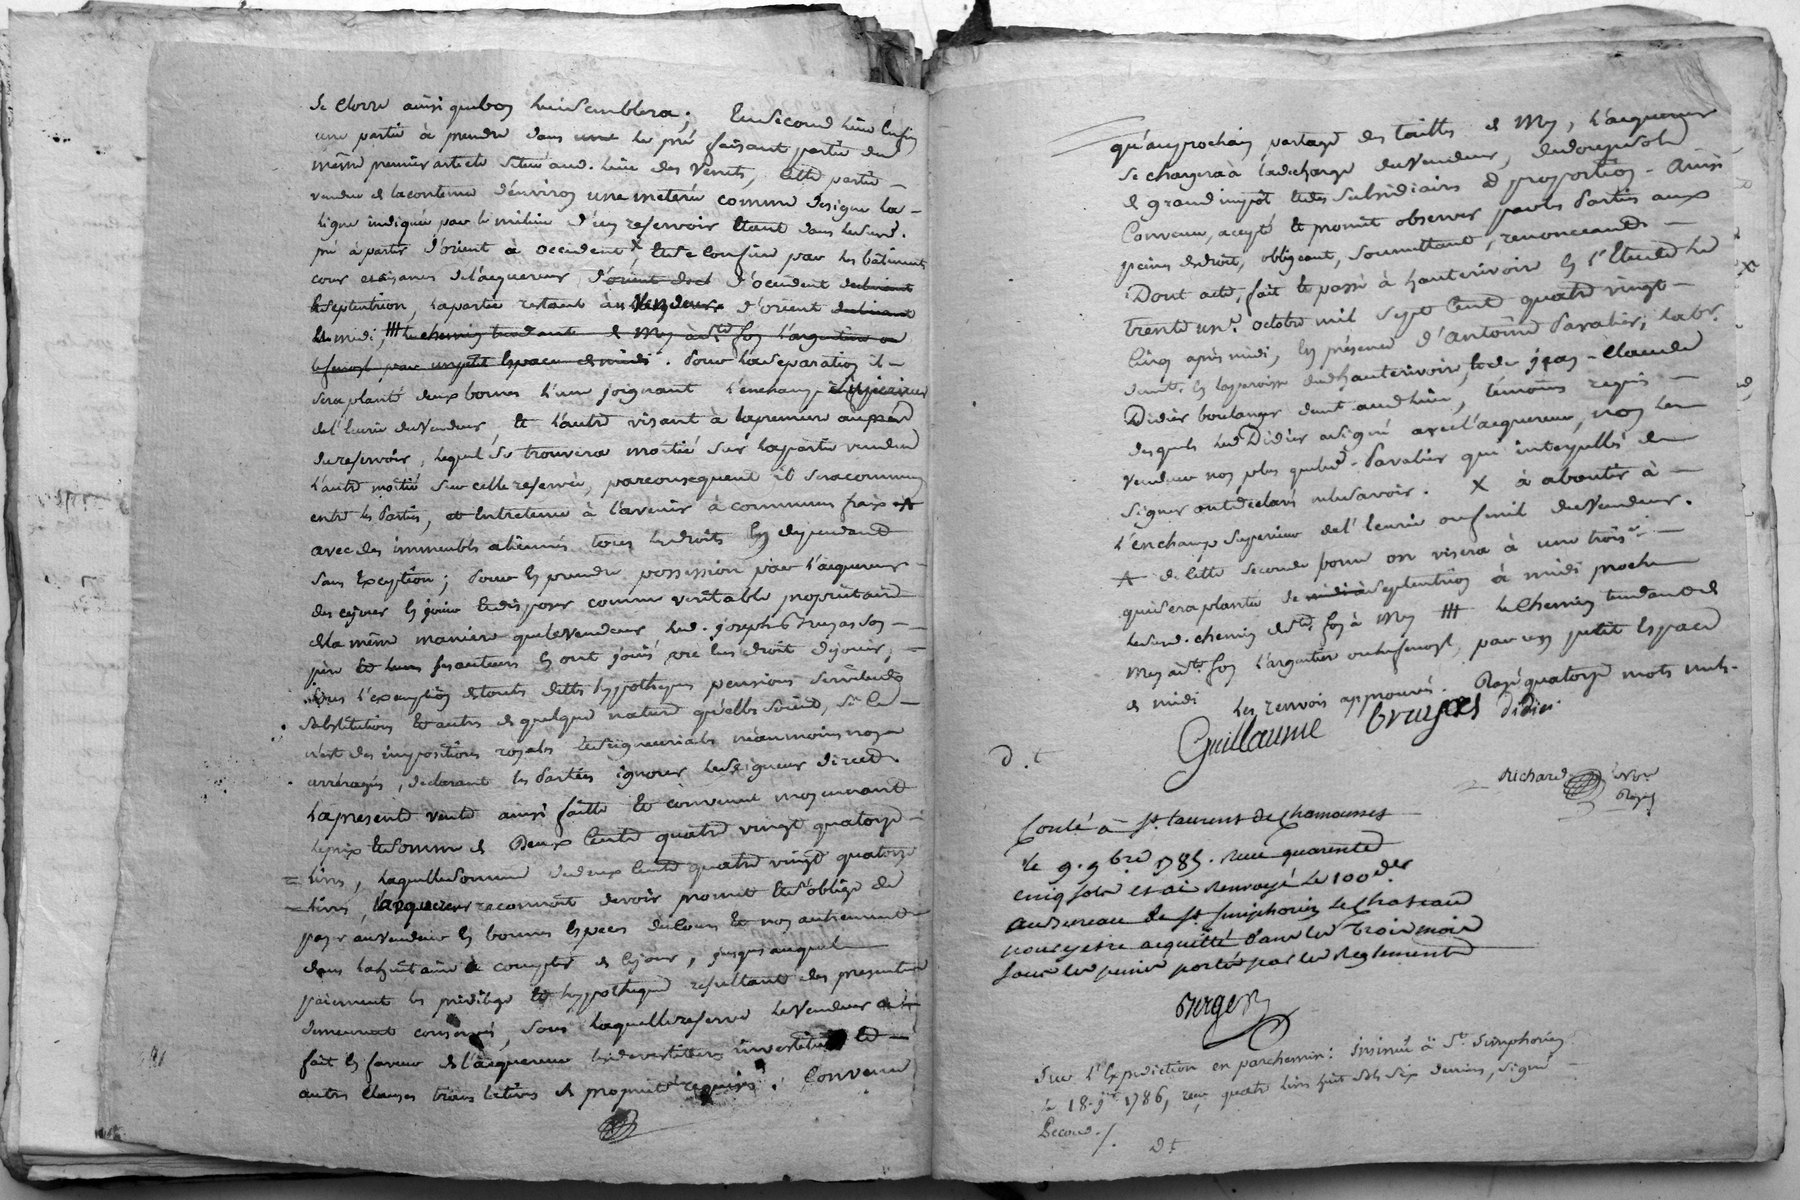 de clorre ainsi que bon lui semblera; En second lieu Enfin
une partie à prendre dans une le pré faisant partie du
même premier article situé aud. lieu des Verrets, cette partie
vendue de la contenue d'environ une meterée comme designe la
ligne indiquée par le milieu d'un reservoir Etant dans led.
pré à partir d'orient à occident X, Et se Confine par les bâtiments
cour et aisances de l'acquereur, d'orient d'occident declinant
le septentrion, la partie restant au Vendeur d'orient declinant
Et midi, ttt le chemin tendant de Mey à St. foy l'argentiere ou
par un petit Espace de midi. Pour la separation il
sera planté deux bornes l'une joignant l'enchamp superieur
de l'Ecurie du Vendeur, Et l'autre visant à la premiere au pied
du reservoir, lequel se trouvera moitié sur la partie vendue
l'autre moitié sur celle reservée, par consequent il sera commun
entre les Parties, et Entretenu à l'avenir à communs frais A
avec des immeubles alienés tous les droits En dependant
sans Exception; Pour En prendre possession par l'acquereur
des ce jour En jouir Et disposer comme veritable proprietaire
de la même maniere que le Vendeur led. joseph Bruyas son
pere Et leurs fs auteurs En ont joui avec dus droit de jouir,
sous l'exemption de toutes dettes hypotheques pensions servitudes
substitutions Et autres de quelque nature qu'elles soient, si ce
n'est des impositions royales Et seigneuriales néanmoins non
arréragés, declarant les Parties ignorer le Seigneur direct.
La presente vente ainsi faitte Et convenue moyennant
le prix Et somme de Deux Cents quatre vingt quatorze
livres, laquelle somme de deux Cents quatre vingt quatorze
livres, l'acquereur reconnoit devoir promet Et s'oblige de
payer au Vendeur En bonnes Especes de cours Et non autrement
dans la huitaine à compter de ce jour, jusques auquel
paiement les privilege Et hypotheque resultant des presentes
demeurent conservés, sous laquelle reserve le Vendeur a
fait En faveur de l'acquereur les devestitures investitures Et
autres Clauses translatives de proprieté requises. Convenu
qu'au prochain partage des tailles de Mey, l'acquereur
se chargera à la decharge du Vendeur, de douze sols
de grand impôt Et des subsidiaires à proportion. Ainsi
Convenu, accepté Et promit observer par les Parties aux
peines de droit, obligeant, soumettant, renonceant
Dont acte, fait Et passé à hauterivoire En l'Etude le
trente un. octobre mil sept Cent quatre vingt
Cinq après midi, En présence d'antoine Pavalier, labr.
demt. En la paroisse dud. hauterivoire, Et de jean-Claude
Didier boulanger demt aud. lieu, témoins requis
desquels led. Didier a signé avec l'acquereur, non le
Vendeur non plus que led. Pavalier qui interpellés de
signer ont déclaré ne le savoir. X à aboutir à
l'enchamp superieur de l'Ecurie ou fenil du Vendeur.
A de cette seconde borne on visera à une trois.e
qui sera plantée de midi à septentrion à midi proche
led. chemin de Ste. foy à Mey ttt le Chemin tendant de
Mey à Ste foy l'argentiere, par un petit Espace
de midi les renvois approuvés. Rayé quatorze mots nuls.
Guillaume bruyas didier
d. t
Richard Nre
Royal
Contlé à St. Laurent de Chamousset
le 9. 9bre 1785. reçu quarante
cinq sols et ai renvoyé le 100 der
au bureau de St. Simphorien le Chateau
pour y etre acquitté dans les trois mois
sous les peines portées par les Reglements
Berger
Fait l'Expedition en parchemin: insinué à St. Simphorien
le 18. 1786, reçu quatre livres huit sols six deniers, signé
Second./.
D t